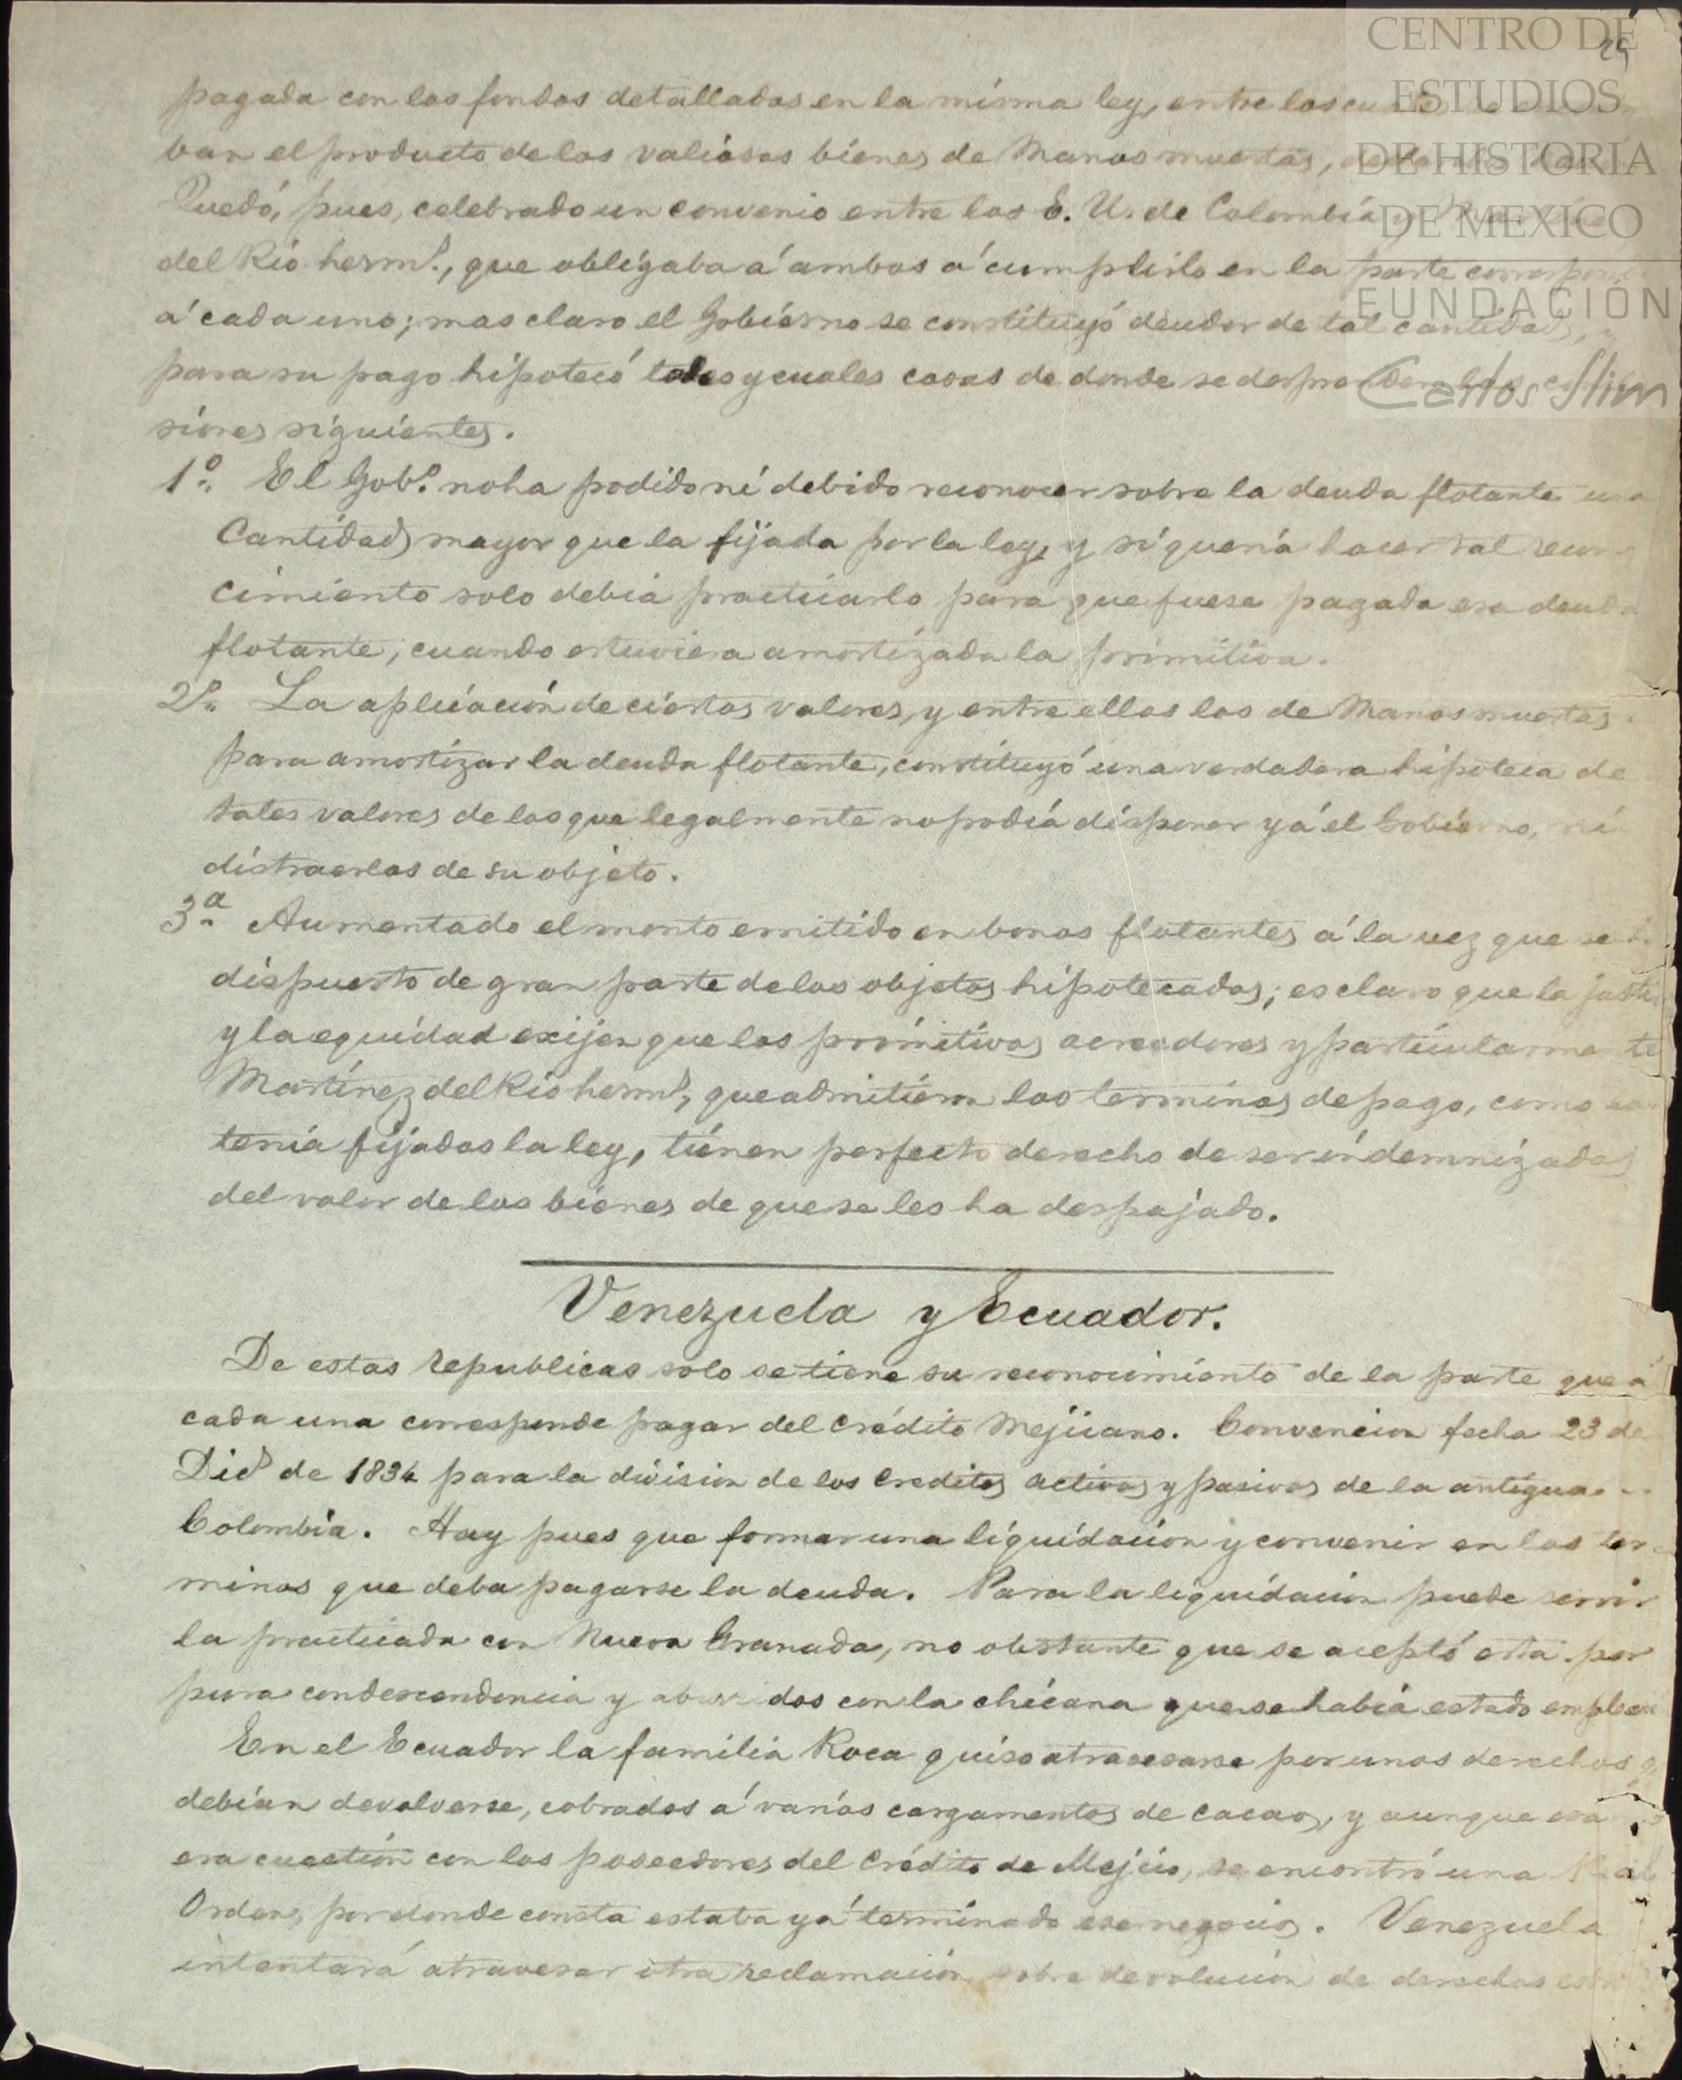 29
CENTRO DE
ESTUDIOS
DE HISTORIA
DE MEXICO
FUNDACIÓN
Carlos Slim
pagada con los fondos detallados en la misma ley, entre los
ban el producto de los valiosos bienes de Manos muertas,
Quedó, pues, celebrado un convenio entre los E. U. de Colombia y
del Rio herm.ˢ, que obligaba á ambos á cumplirlo en la parte
á cada uno; mas claro el Gobierno se constituyó deudor de tal cantidad, y
para su pago hipotecó tales y cuales cosas de donde se desprenden las
siones siguientes.
1ª. El Gob.º no ha podido ni debido reconocer sobre la deuda flotante una
Cantidad mayor que la fijada por la ley, y si queria hacer tal recono
cimiento solo debia practicarlo para que fuese pagada esa deuda
flotante, cuando estuviera amortizada la primitiva.
2ª. La aplicacion de ciertos valores, y entre ellos los de Manos muertas
para amortizar la deuda flotante, constituyó una verdadera hipoteca de
tales valores de los que legalmente no podia disponer yá el Gobierno, ni
distraerlos de su objeto.
3ª Aumentado el monto emitido en bonos flotantes á la vez que se
dispuesto de gran parte de los objetos hipotecados; es claro que la justi
y la equidad exijen que los primitivos acreedores y particularmente
Martinez del Rio herm.ˢ, que admitieron los terminos de pago, como
tenia fijados la ley, tienen perfecto derecho de ser indemnizados
del valor de los bienes de que se les ha despojado.
Venezuela y Ecuador.
De estas republicas solo se tiene su reconocimiento de la parte que á
cada una corresponde pagar del crédito Mejicano. Convencion fecha 23 de
Dicᵉ de 1834 para la division de los creditos activos y pasivos de la antigua
Colombia. Hay pues que formar una liquidacion y convenir en los ter
minos que deba pagarse la deuda. Para la liquidacion puede servir
la practicada con Nueva Granada, no obstante que se aceptó esta por
pura condescendencia y aburridos con la chicana que se habia estado emplean
En el Ecuador la familia Roca quiso atravesarse por unos derechos q
debian devolverse, cobrados á varios cargamentos de cacao, y aunque esa no
era cuestión con los poseedores del crédito de Mejico, se encontró una Real
Orden, por donde consta estaba yá terminado ese negocio. Venezuela
intentará atravesar otra reclamacion sobre devolucion de derechos